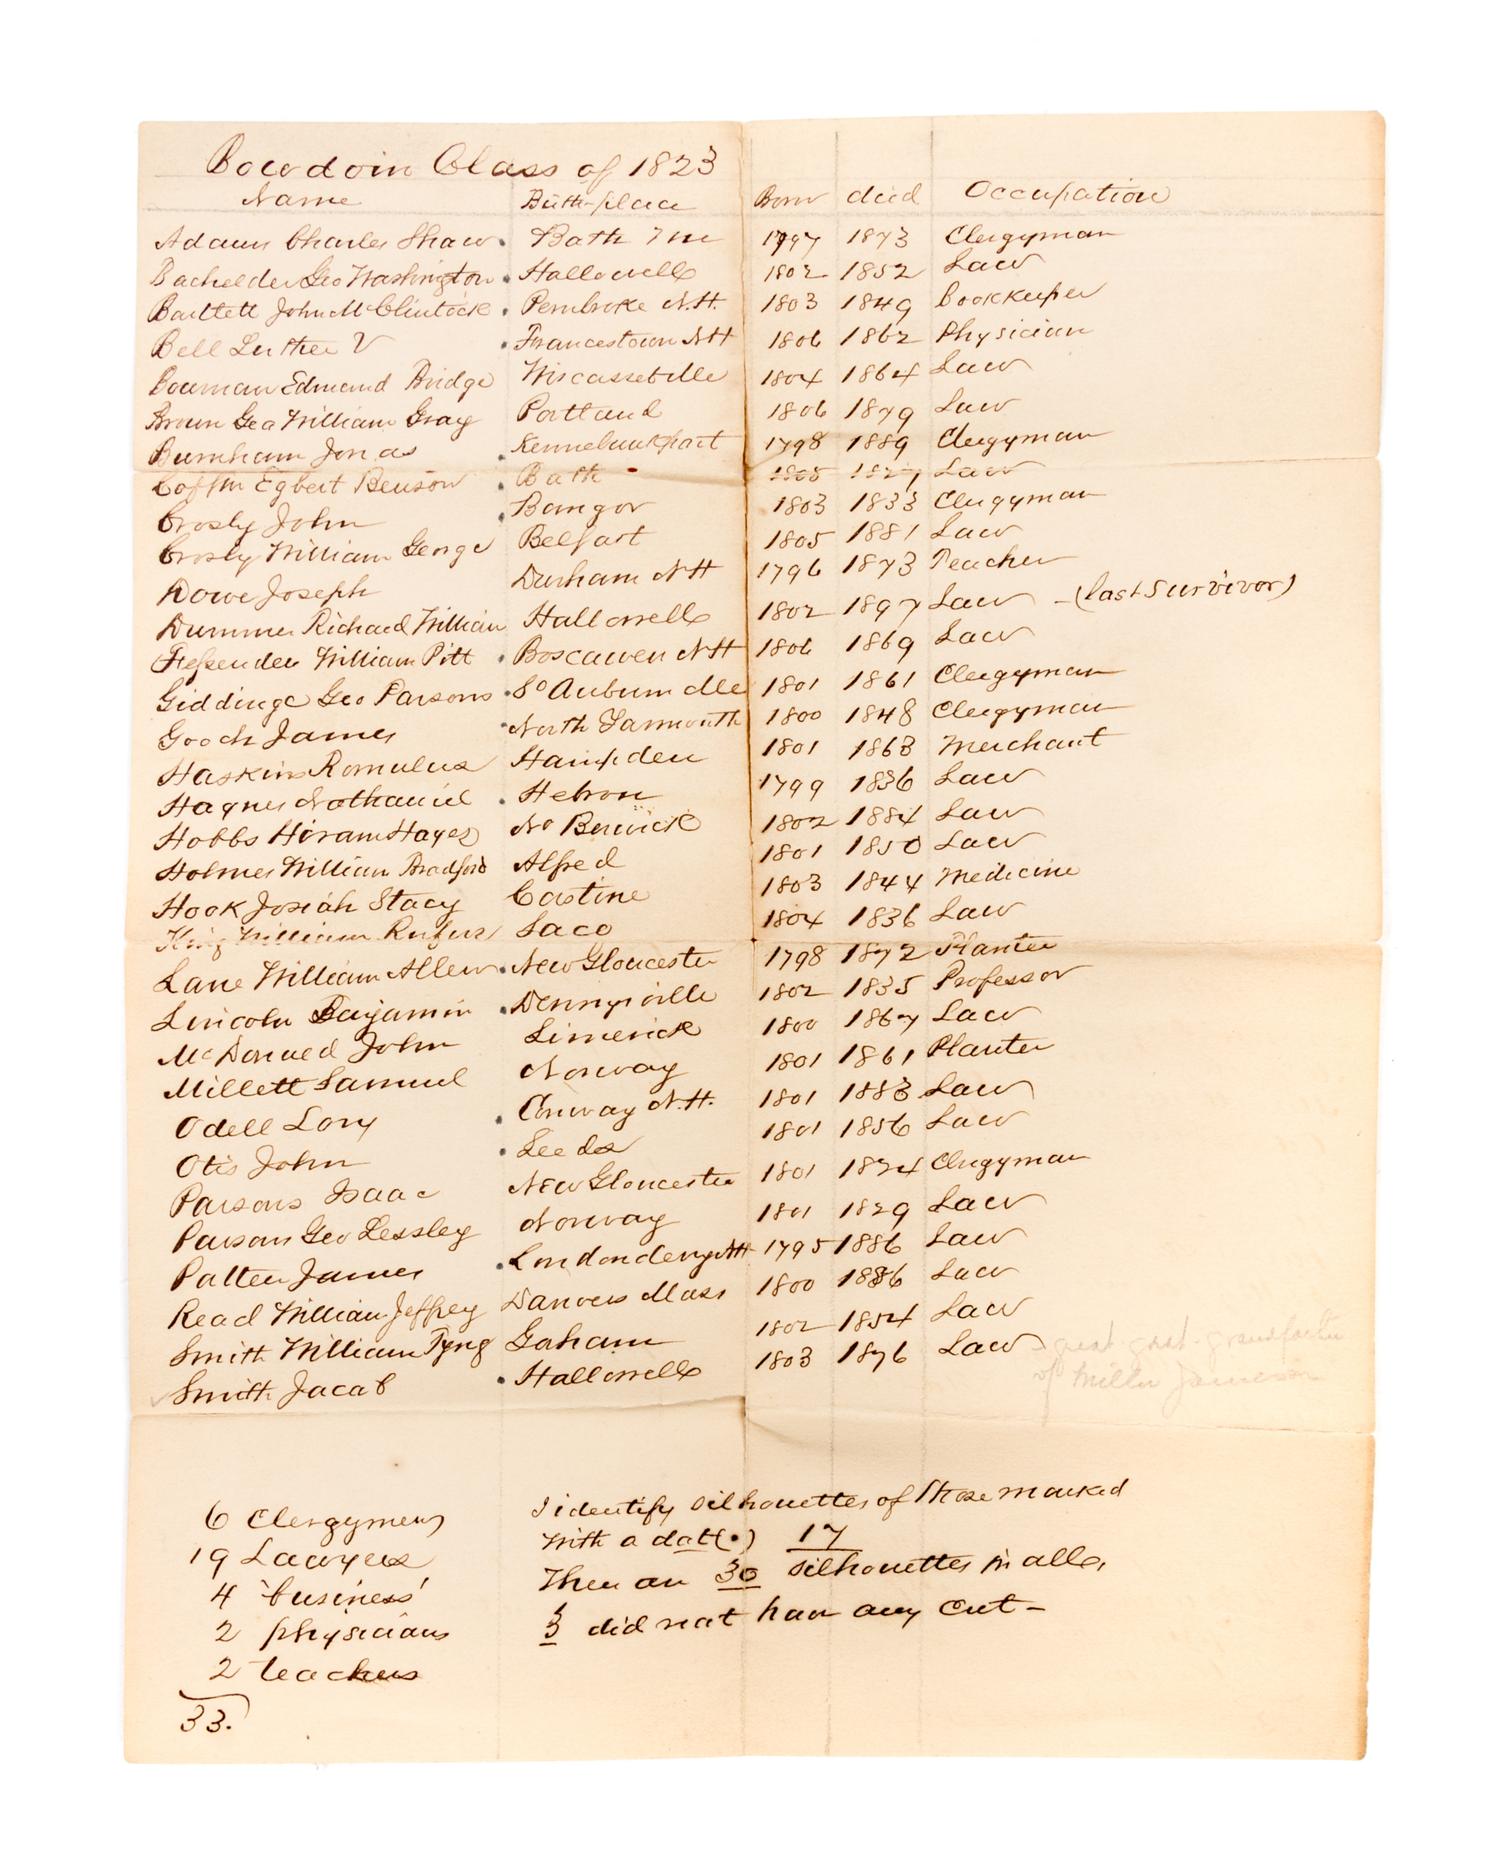 Bowdoin Class of 1823
Name Birth-place Born died Occupation
Adams Charles Shaw . Bath Me 1797 1873 Clergyman
Bachelder Geo Washington . Hallowell 1802 1852 Law
Bartlett John McClintock . Pembroke N.H. 1803 1849 Bookkeeper
Bell Luther V . Francestown NH 1806 1862 Physician
Bowman Edmund Bridge Wiscasset 1804 1864 Law
Brown Geo William Gray Portland 1806 1879 Law
Burnham Jonas . Kennebunkport 1798 1889 Clergyman
Coffin Egbert Benson . Bath 1805 1827 Law
Crosby John . Bangor 1803 1833 Clergyman
Crosby William George Belfast 1805 1881 Law
Dowe Joseph Durham NH 1796 1873 Teacher
Dummer Richard William Hallowell 1802 1897 Law - (last survivor)
Fessenden William Pitt . Boscawen NH 1806 1869 Law
Giddinge Geo Parsons . So Auburn Me 1801 1861 Clergyman
Gooch James . North Yarmouth 1800 1848 Clergyman
Haskins Romulus Hampden 1801 1863 Merchant
Haynes Nathaniel . Hebron 1799 1836 Law
Hobbs Hiram Hayes No Berwick 1802 1884 Law
Holmes William Bradford Alfred 1801 1850 Law
Hook Josiah Stacy Castine 1803 1844 Medicine
King William Rufus Saco 1804 1836 Law
Lane William Allen . New Gloucester 1798 1872 Planter
Lincoln Benjamin . Dennysville 1802 1835 Professor
McDonald John Limerick 1800 1867 Law
Millett Samuel Norway 1801 1861 Planter
Odell Lory . Conway N.H. 1801 1883 Law
Otis John . Leeds 1801 1856 Law
Parsons Isaac New Gloucester 1801 1824 Clergyman
Parsons Geo Lessley Norway 1801 1829 Law
Patten James . Londonderry NH 1795 1886 Law
Read William Jeffrey Danvers Mass 1800 1886 Law
Smith William Tyng Goham 1802 1854 Law
Smith Jacob . Hallowell 1803 1876 Law great great-grandfather
of Miller Jameson
6 Clergymen
19 Lawyers
4 'business'
2 physicians
2 teachers
33.
I identify silhouettes of those marked
With a dot (•) 17
There are 30 silhouettes in all,
3 did not have any cut -